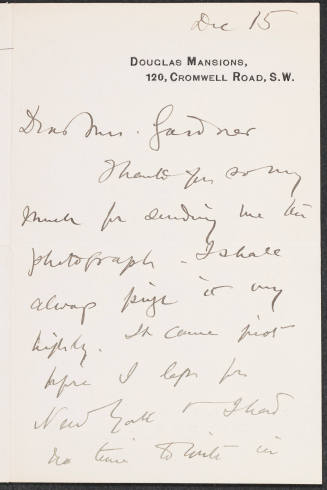 Dec 15
DOUGLAS MANSIONS,
120, CROMWELL ROAD, S.W.
Dear Mrs. Gardner
Thank you so very
much for sending me the
photograph. I shall
always prize it very
highly. It came just
before I left for
New York & I had
no time to write in